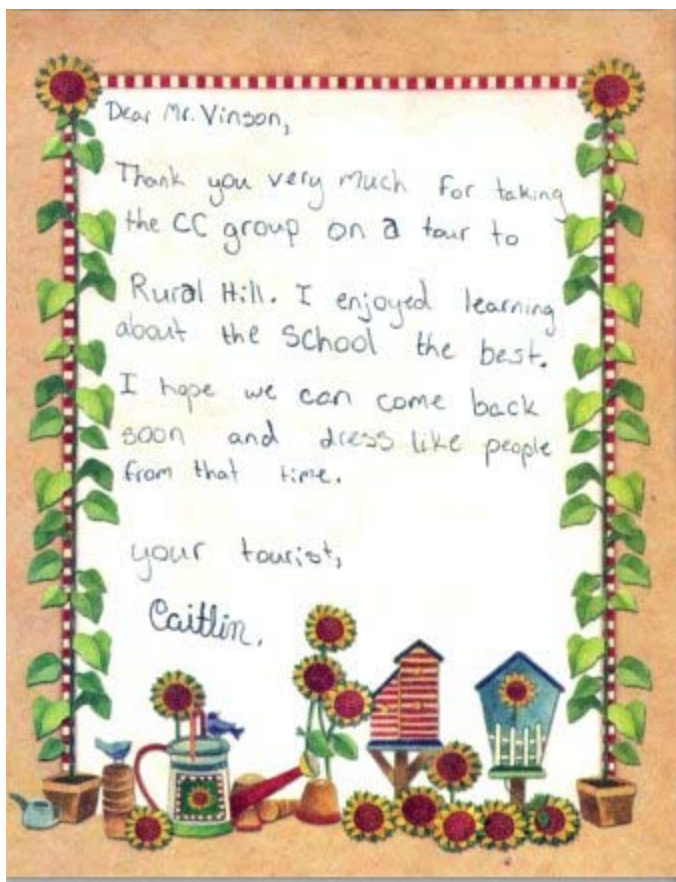 Dear Mr. Vinson,
Thank you very much for taking
the CC group on a tour to
Rural Hill. I enjoyed learning
about the School the best.
I hope we can come back
soon and dress like people
from that time.
your tourist,
Caitlin.